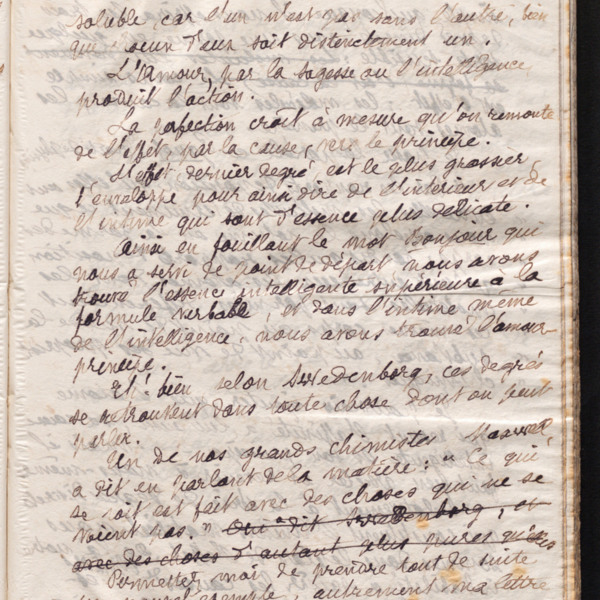 soluble car l'un n'est pas sans l'autre, bien
que chacun d'eux soit distinctement un.
L'Amour, par la sagesse ou l'intelligence,
produit l'action.
La perfection croît à mesure qu'on remonte
de l'effet, par la cause, vers le principe.
L'effet dernier degré est le plus grossier,
l'enveloppe pour ainsi dire de l'intérieur et de
l'intime qui sont d'essence plus délicate.
Ainsi en fouillant le mot Bonjour qui
nous a servi de point de départ, nous avons
trouvé l'essence intelligente supérieure à la
formule verbale, et dans l'intime même
de l'intelligence, nous avons trouvé l'amour
principe.
Eh! bien selon Swedenborg, ces degrés
se retrouvent dans toute chose dont on peut
parler.
Un de nos grands chimistes
a dit en parlant de la matière: "Ce qui
se voit est fait avec des choses qui ne se
voient pas." Oui dit Swedenborg, et
avec des choses d'autant plus pures qu'elles
Permettez moi de prendre tout de suite
un nouvel exemple, autrement ma lettre